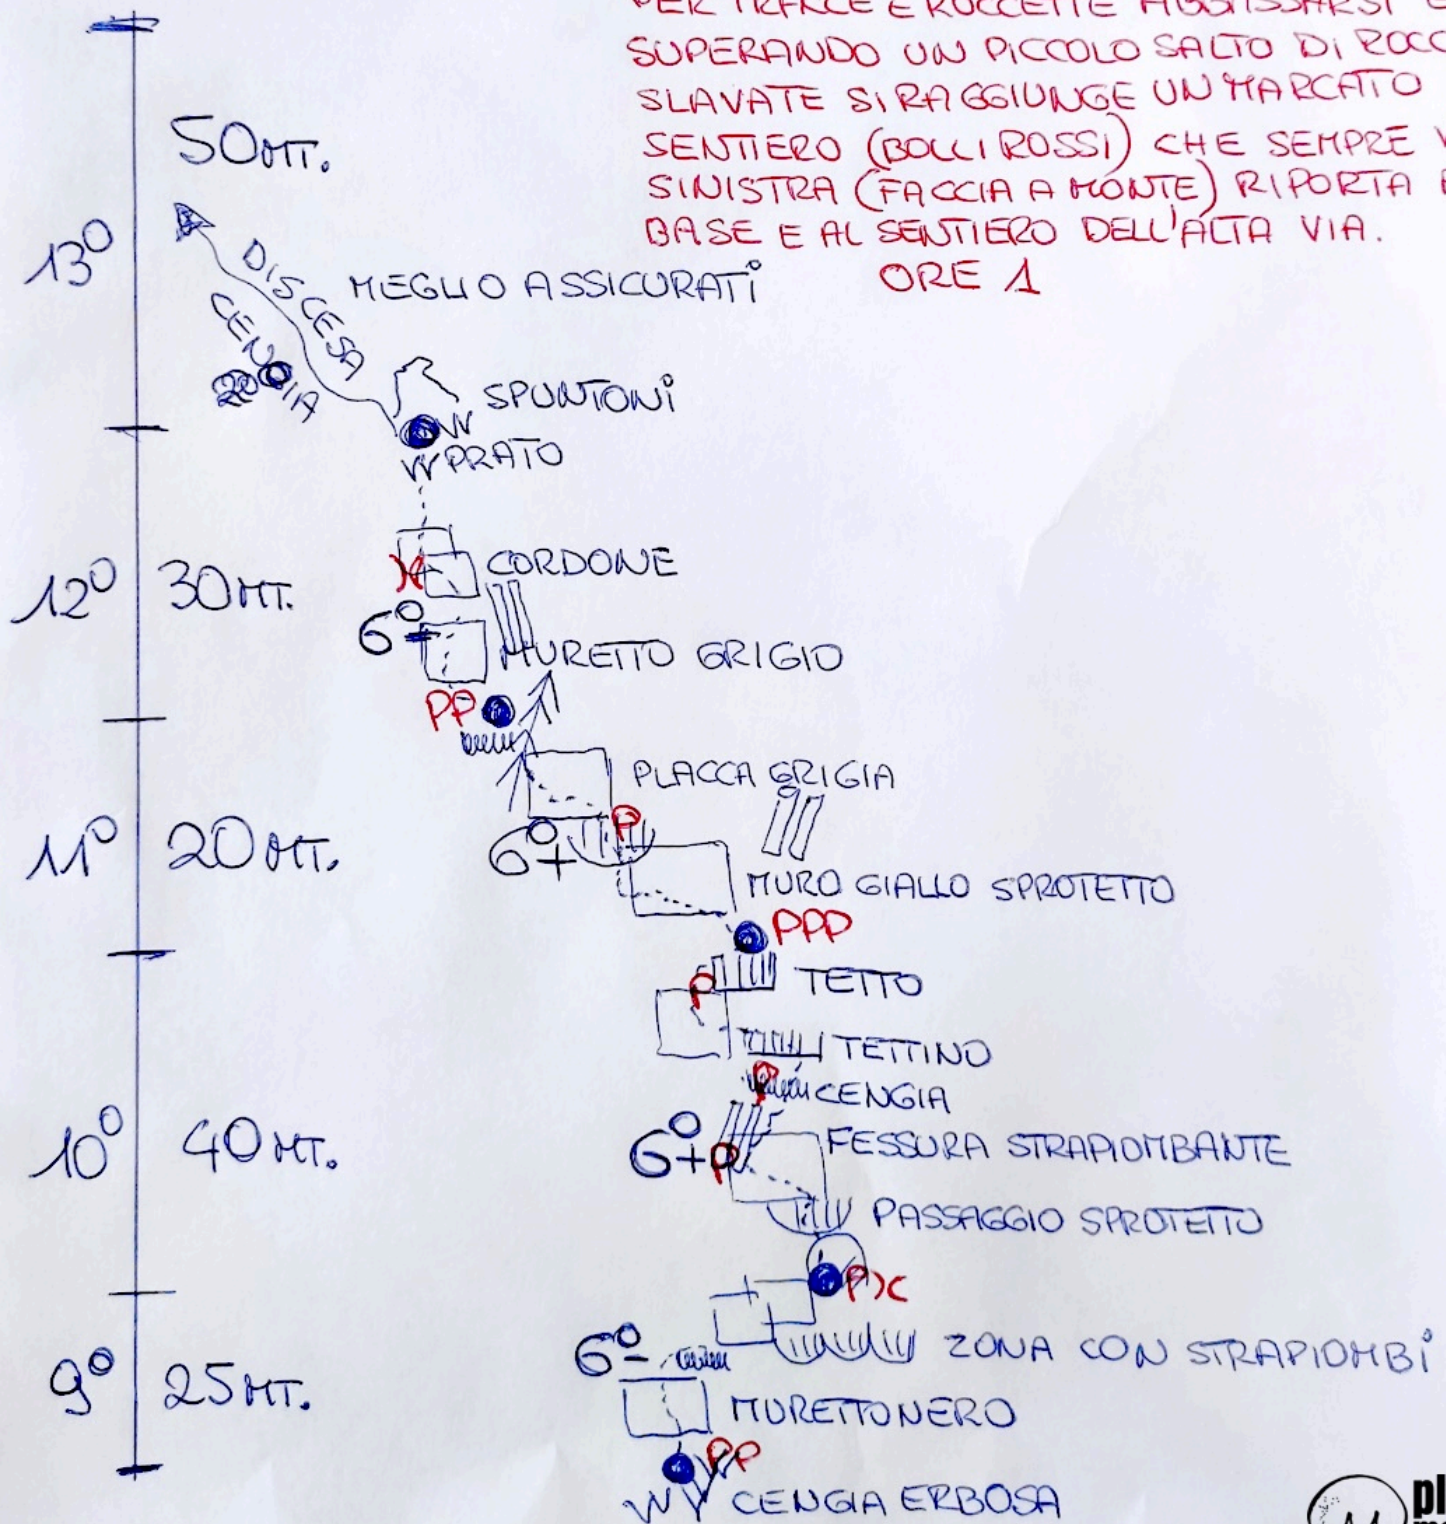 PER TRACCE E ROCCETTE ABBASSARSI E
SUPERANDO UN PICCOLO SALTO DI ROCC
SLAVATE SI RAGGIUNGE UN MARCATTO
SENTIERO (BOLLI ROSSI) CHE SEMPRE V
SINISTRA (FACCIA A MONTE) RIPORTA
BASE E AL SENTIERO DELL'ALTA VIA.
ORE 1
50 MT.
13°
DISCESA
CENGIA
MEGLIO ASSICURATI
SPUNTONI
PRATO
CORDONE
12° 30 MT.
6°+
MURETTO GRIGIO
PP
PLACCA GRIGIA
P
11° 20 MT.
6°+
MURO GIALLO SPROTETTO
PPP
P TETTO
TETTINO
P CENGIA
10° 40 MT.
6°+ P FESSURA STRAPIOMBANTE
PASSAGGIO SPROTETTO
P
6°- ZONA CON STRAPIOMBI
9° 25 MT.
MURETTO NERO
PP
CENGIA ERBOSA
pl